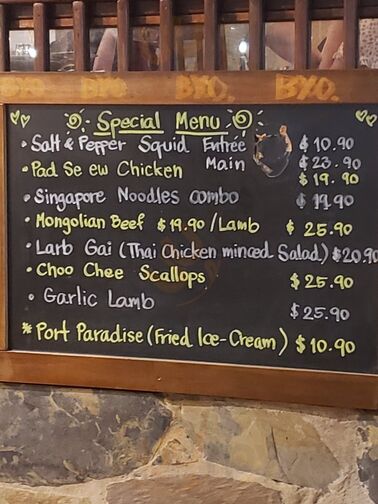 BYO BYO BYO. BYO.
Special Menu
• Salt & Pepper Squid Entrée $10.90
Main $23.90
• Pad Se ew Chicken $19.90
• Singapore Noodles combo $19.90
• Mongolian Beef $19.90/Lamb $25.90
• Larb Gai (Thai Chicken minced Salad) $20.90
• Choo Chee Scallops $25.90
• Garlic Lamb $25.90
* Port Paradise (Fried Ice-Cream) $10.90